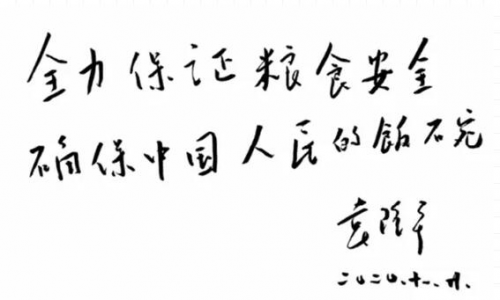 全力保证粮食安全
确保中国人民的饭碗
袁隆平
二〇二〇.十一.